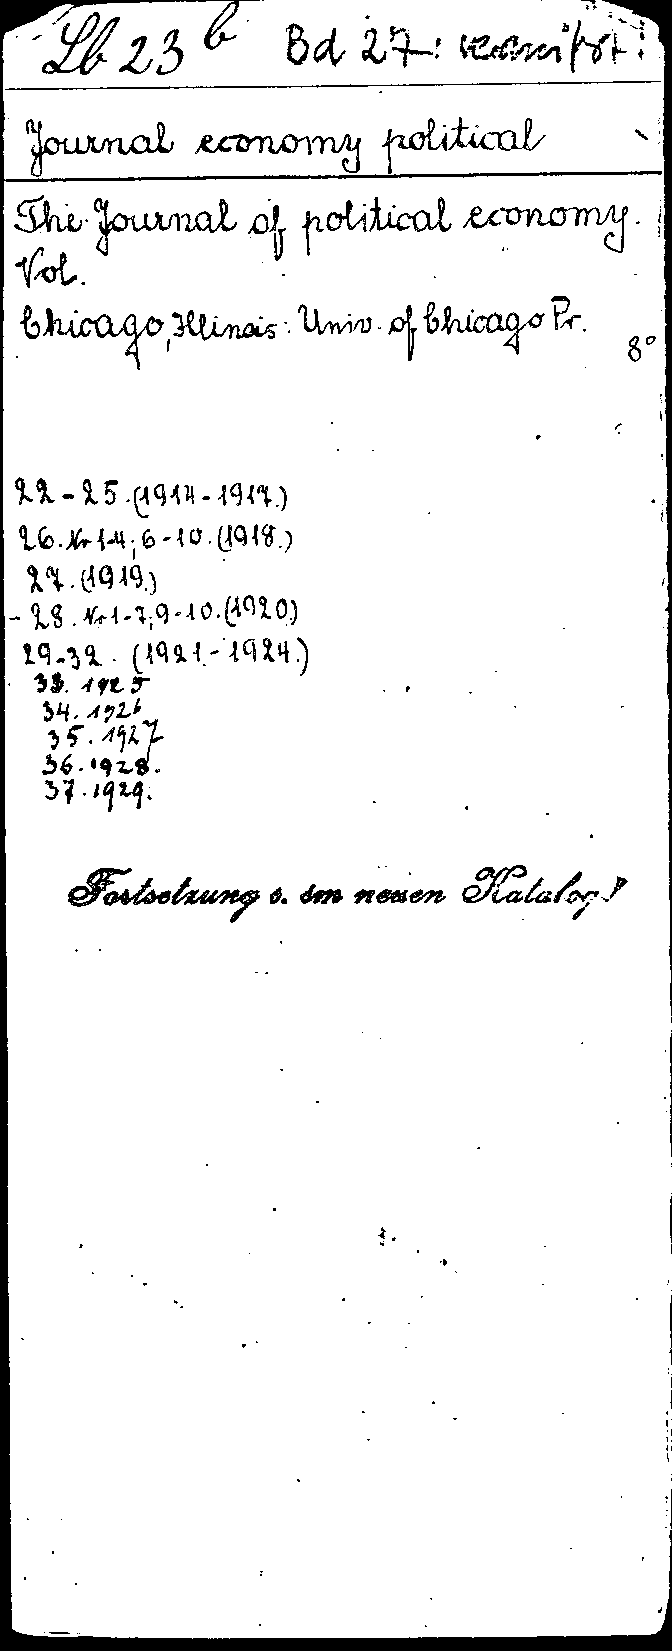 Lb 23 b Bd 27: vermißt!
Journal economy political
The Journal of political economy.
Vol.
Chicago, Illinois: Univ. of Chicago Pr.
8°
22-25.(1914-1917.)
26. Nr 1-4; 6-10. (1918.)
27. (1919.)
- 28. Nr 1-7; 9-10. (1920)
29-32. (1921-1924.)
33. 1925
34. 1926
35. 1927
36. 1928.
37. 1929.
Fortsetzung s. im neuen Katalog!